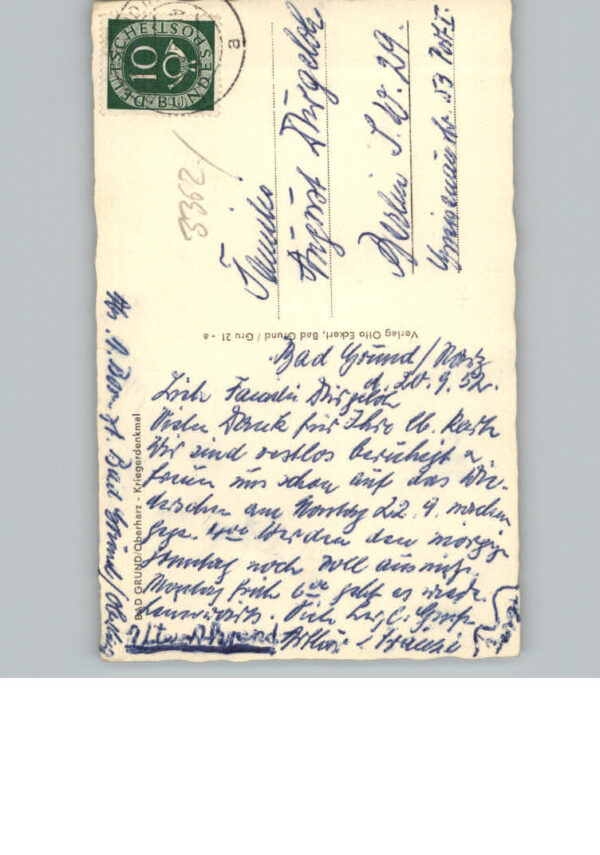 DEUTSCHE BUNDESPOST
10
a
33362
Familie
August Dürgeloh
Berlin S.W. 29.
53
Verlag Otto Eckert, Bad Grund / Gru 21 - a
BAD GRUND/Oberharz - Kriegerdenkmal
Bad Grund/Harz
d. 20.9.52.
Liebe Familie Dürgeloh
Vielen Dank für Ihre lb. Karte
Wir sind restlos beruhigt u
freuen uns schon auf das Wie-
dersehen am Montag 22.9. nachm
gegen Werden den morgigen
Sonntag noch voll ausnutz.
Montag früh 6 geht es wieder
heimwärts. Viele herzl. Grüße
Arthur
Abs. Bad Grund/Oberharz